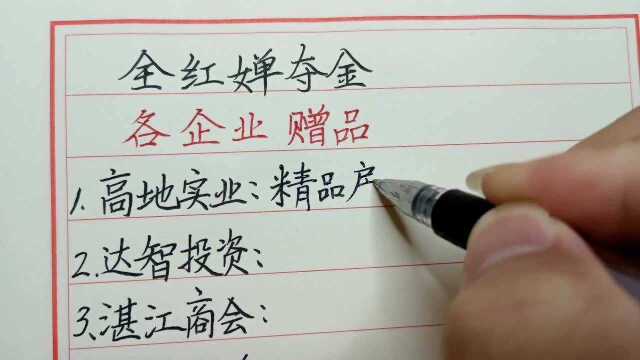 全红婵夺金
各企业赠品
1.高地实业:精品户
2.达智投资:
3.湛江商会: